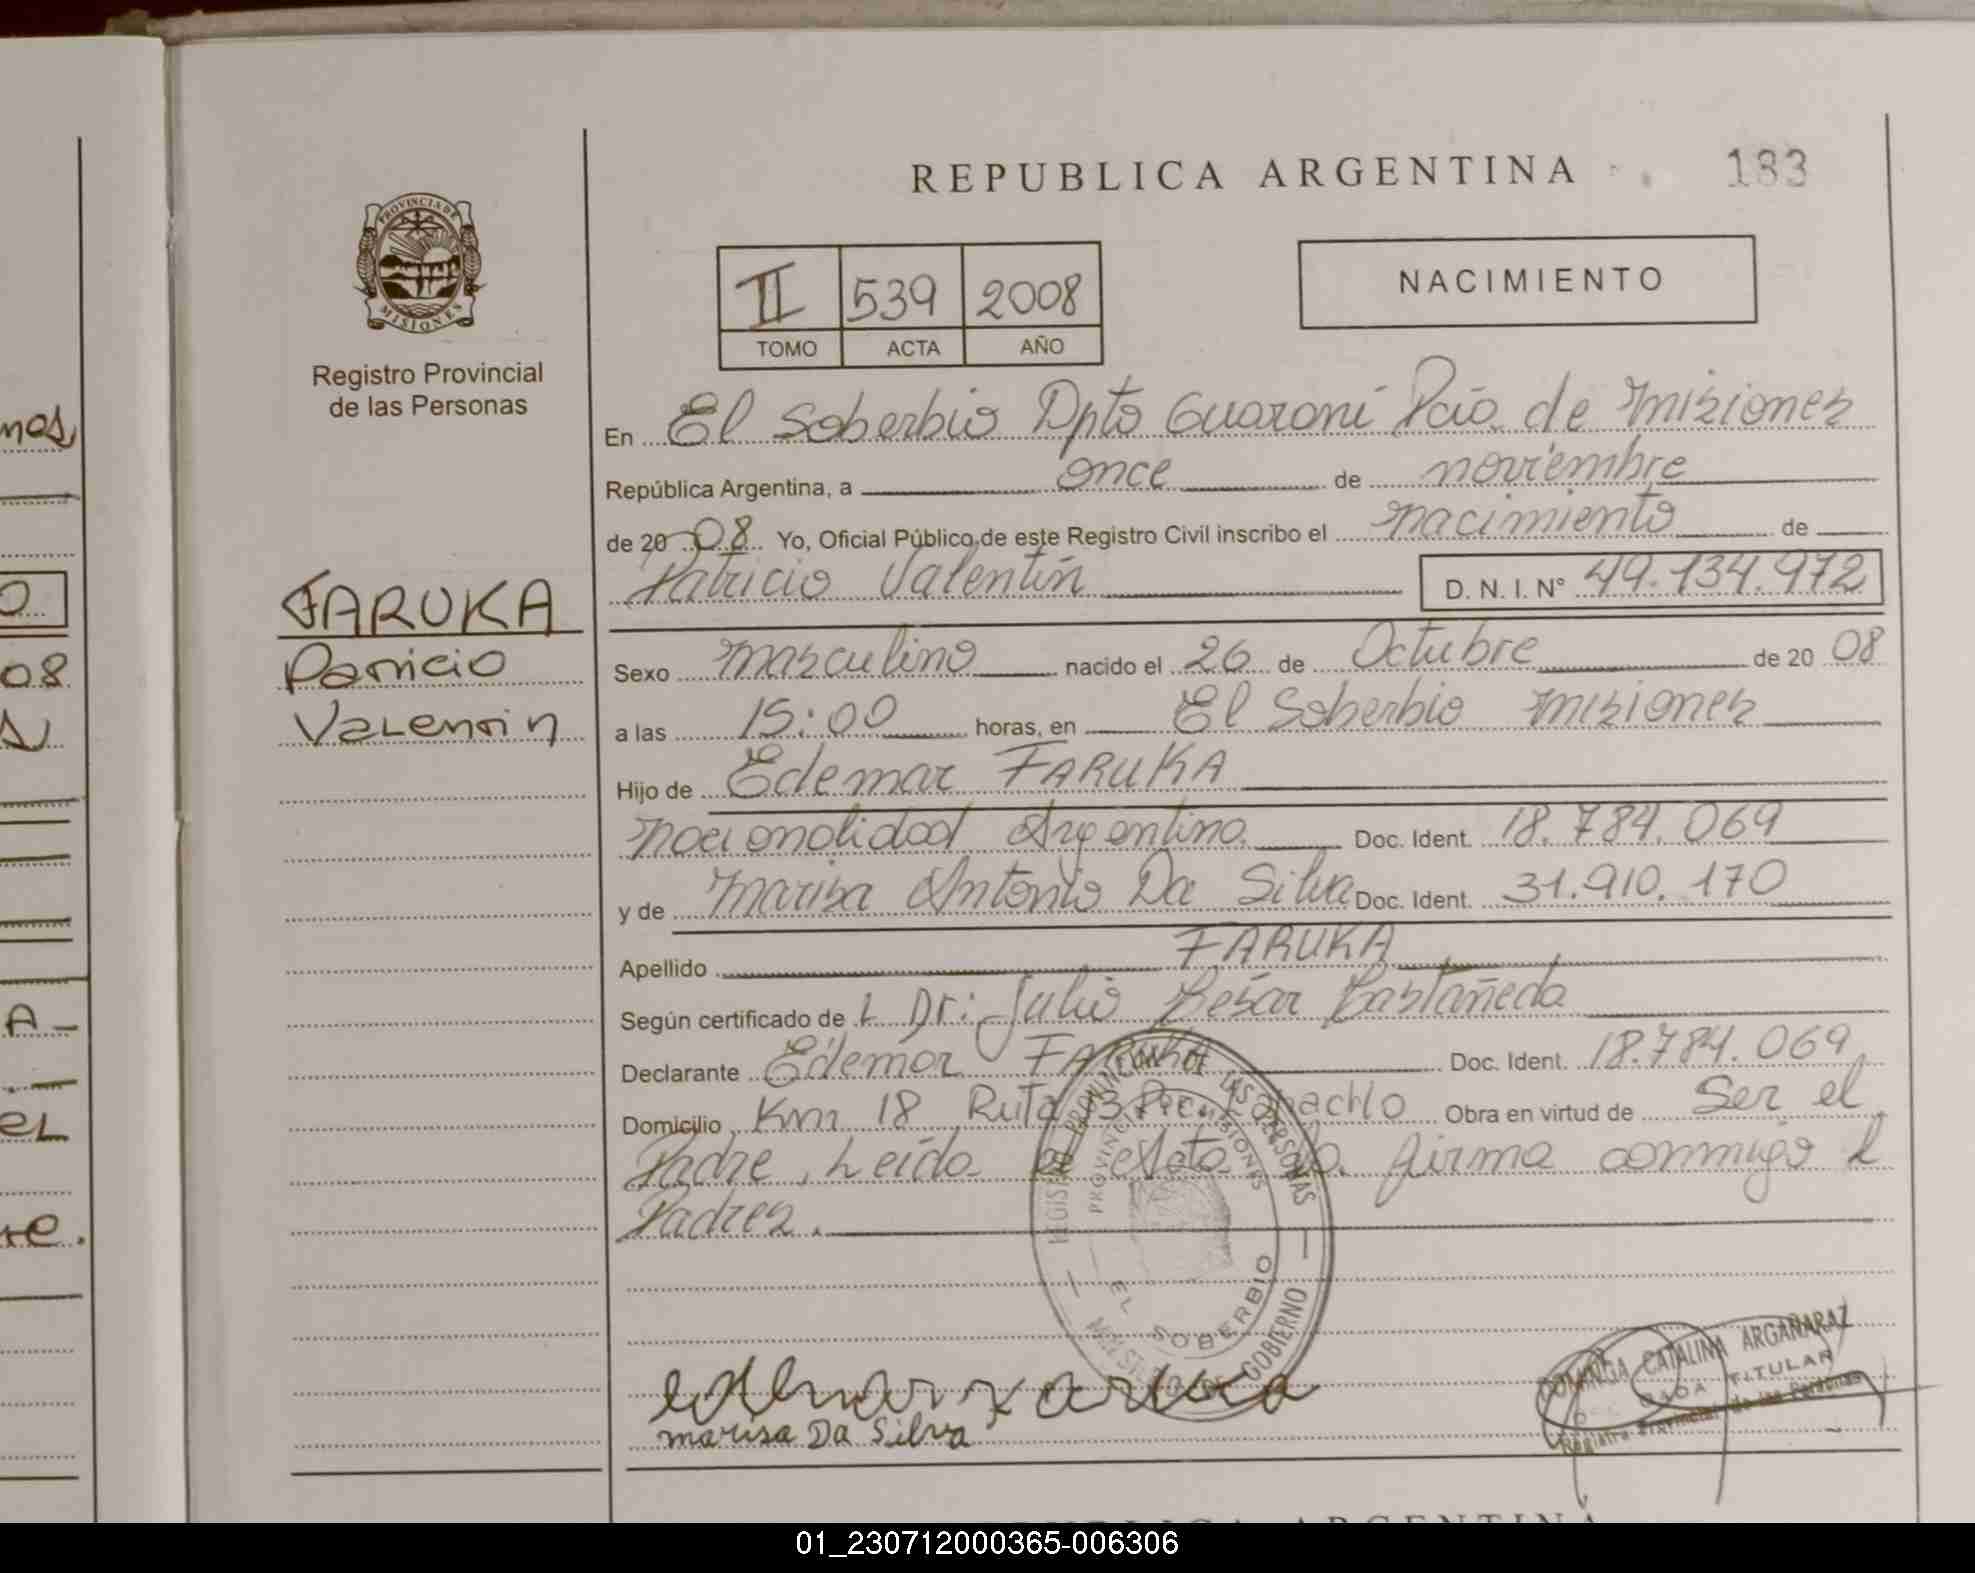 REPUBLICA ARGENTINA
133
PROVINCIA DE
MISIONES
Registro Provincial
de las Personas
II 539 2008
TOMO ACTA AÑO
NACIMIENTO
En El Soberbio Dpto Guaraní Pcia de Misiones
República Argentina, a once de noviembre
de 20 08 Yo, Oficial Público de este Registro Civil inscribo el nacimiento de
Patricio Valentín D. N. I. Nº 49.134.972
FARUKA
Patricio
Valentin
Sexo masculino nacido el 26 de Octubre de 20 08
a las 15:00 horas, en El Soberbio Misiones
Hijo de Edemar FARUKA
nacionalidad Argentina Doc. Ident. 18.784.069
y de Marisa Antonio Da Silva Doc. Ident. 31.910.170
Apellido FARUKA
Según certificado de L Dr: Julio Cesar Castañeda
Declarante Edemar FARUKA Doc. Ident. 18.784.069
Domicilio Km 18 Ruta 13 Pacho Obra en virtud de Ser el
Padre, Leída el Acta la firma conmigo L
Padres.
REGISTRO PROVINCIAL DE LAS PERSONAS
PROVINCIA DE MISIONES
EL SOBERBIO
GOBIERNO
marisa Da Silva
DOMINGA CATALINA ARGAÑARAZ
TITULAR
Registro Provincial de las Personas
REPUBLICA ARGENTINA
01_230712000365-006306